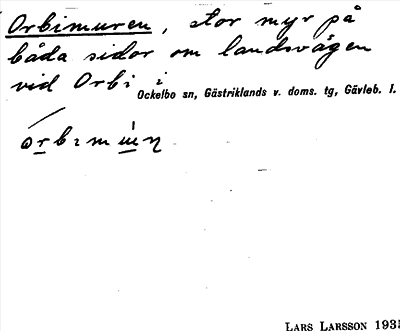 Orbimuren, stor myr på
båda sidor om landsvägen
vid Orbi i
Ockelbo sn, Gästriklands v. doms. tg, Gävleb. l.
LARS LARSSON 1935